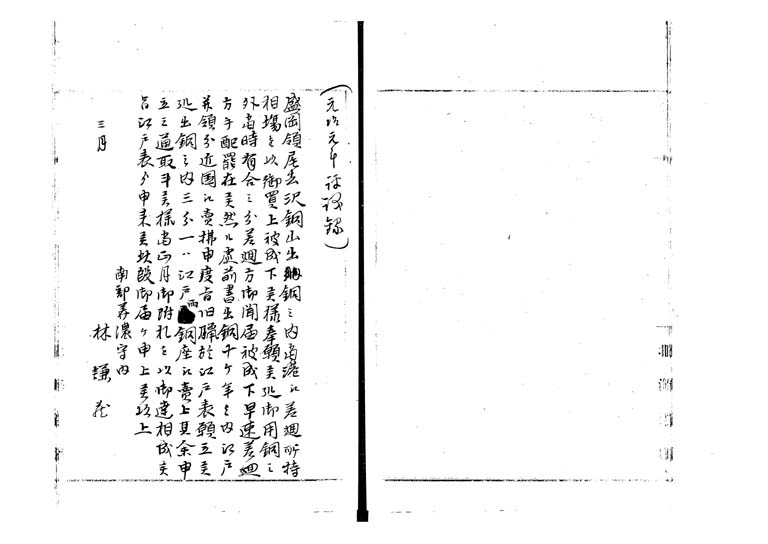 (元治元年 録)
盛岡領尾去沢銅山出銅之内当港江差廻所持
相場を以御買上被成下候様奉願候処御用銅之
外当時有合之分差廻方御聞届被成下早速差廻
方手配罷在候然ル処前書出銅千ケ年之内江戸
并領分近国江売捌申度旨旧臘於江戸表願立候
処出銅之内三分一ハ江戸両銅座江売上其余申
立之通取斗候様当正月御附札を以御達相成候
旨江戸表ゟ申来候此段御届ケ申上候以上
南部美濃守内
三月 林 謙